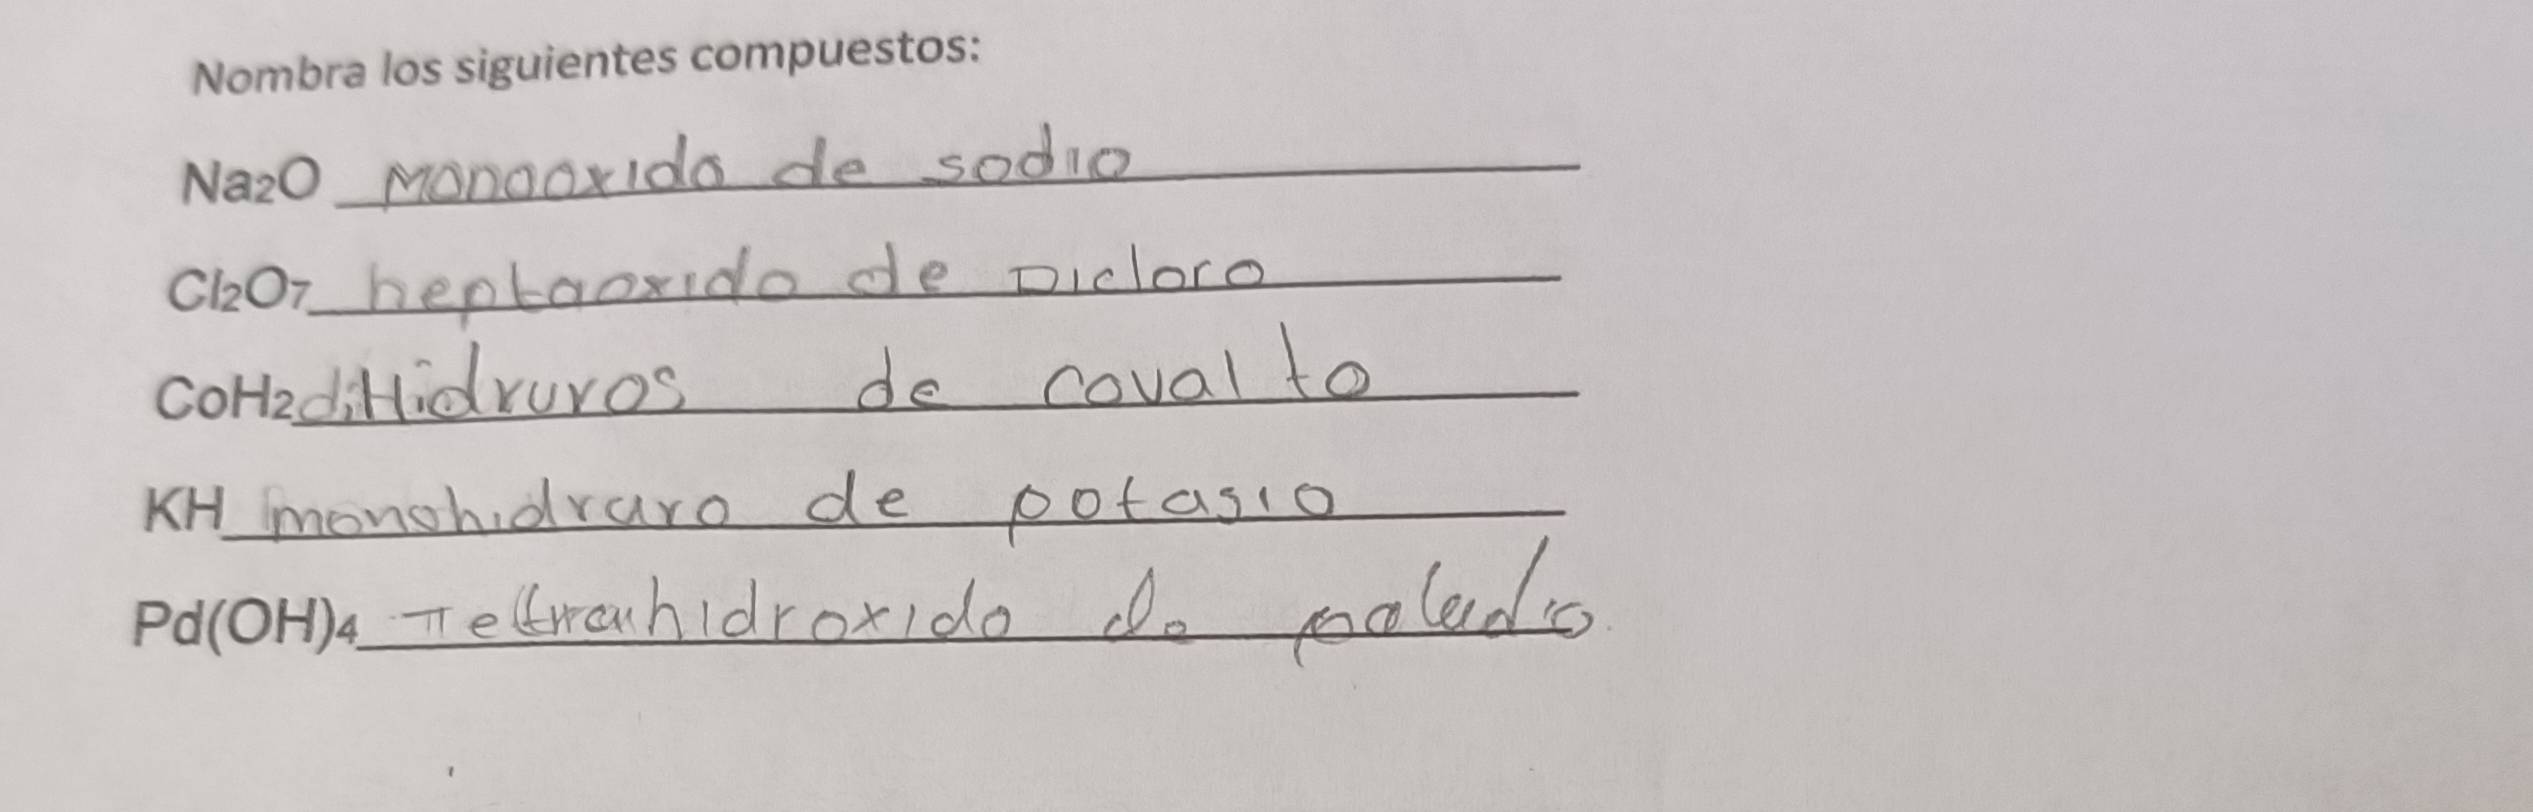 Nombra los siguientes compuestos:
Na2O Monooxido de sodio
Cl2O7 heptaoxido de Dicloro
CoH2 diHidruros de covalto
KH monohidruro de potasio
Pd(OH)4 Tetrahidroxido de paladio